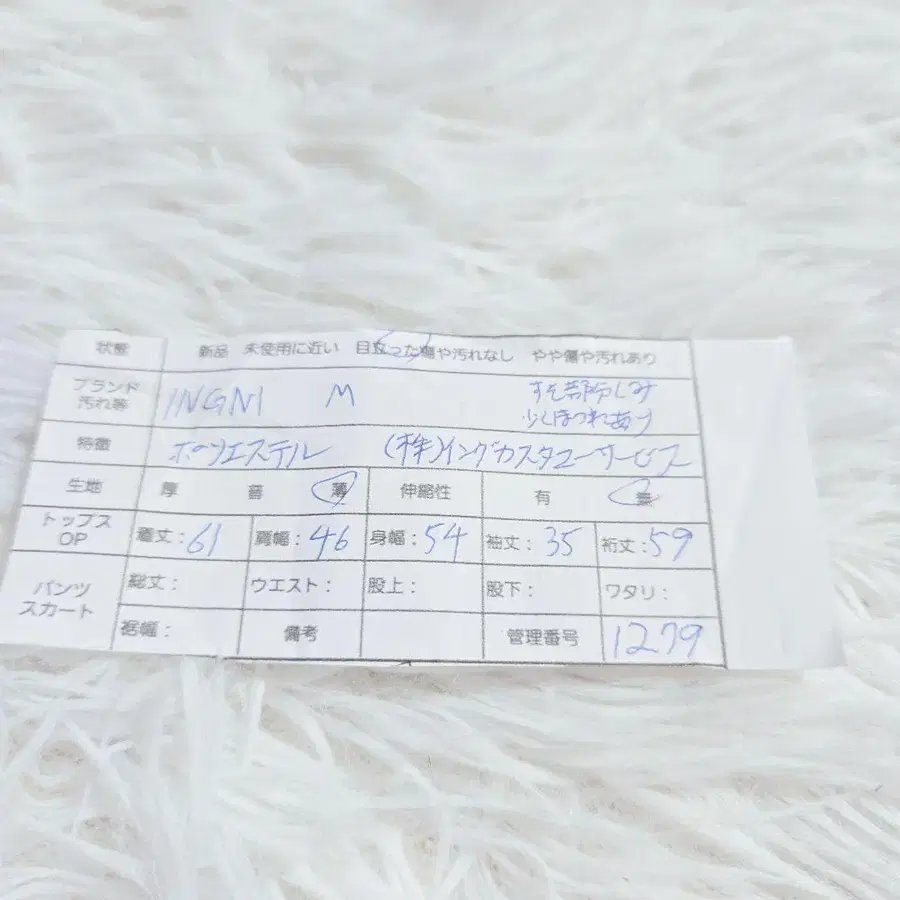 状態 新品 未使用に近い 目立った傷や汚れなし やや傷や汚れあり
ブランド 汚れ等 INGNI M すそ部分しみ 少しほつれあり
特徴 ポリエステル (株)イングカスタマーサービス
生地 厚 普 薄 伸縮性 有 無
トップス OP 着丈:61 肩幅:46 身幅:54 袖丈:35 裄丈:59
パンツ スカート 総丈: ウエスト: 股上: 股下: ワタリ:
裾幅: 備考 管理番号 1279